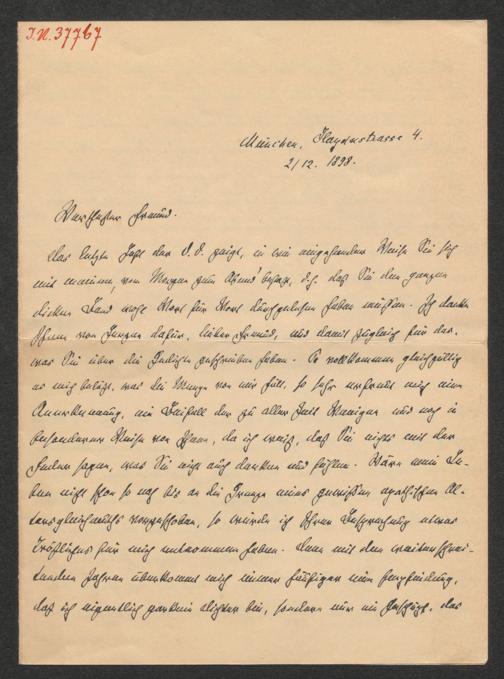 I.N. 37767
München, Haydnstrasse 4.
2/12. 1898.
Verehrter Freund.
Das letzte Heft der D. D. zeigt, in wie eingehender Weise Sie sich
mit meinem vom Morgen zum Abend befaßt, d. h. daß Sie den ganzen
dicken Band wohl Wort für Wort durchgelesen haben müssen. Ich danke
Ihnen von Herzen dafür, lieber Freund, und damit zugleich für das,
was Sie über die Gedichte geschrieben haben. So vollkommen gleichgültig
es mich beläßt, was die Menge von mir hält, so sehr erfreut mich eine
Anerkennung, ein Beifall der zu aller Zeit Wenigen und noch in
besonderer Weise von Ihnen, da ich weiß, daß Sie nichts mit der
Feder sagen, was Sie nicht auch denken und fühlen. Wäre mein Le-
ben nicht schon so nah bis an die Grenze eines gewissen apathischen Al-
tersgleichmuths vorgeschoben, so würde ich Ihrer Besprechung etwas
Tröstliches für mich entnommen haben. Denn mit den weiterschrei-
tenden Jahren überkommt mich immer häufiger eine Empfindung,
daß ich eigentlich gar kein Dichter bin, sondern nur ein Geschöpf, das